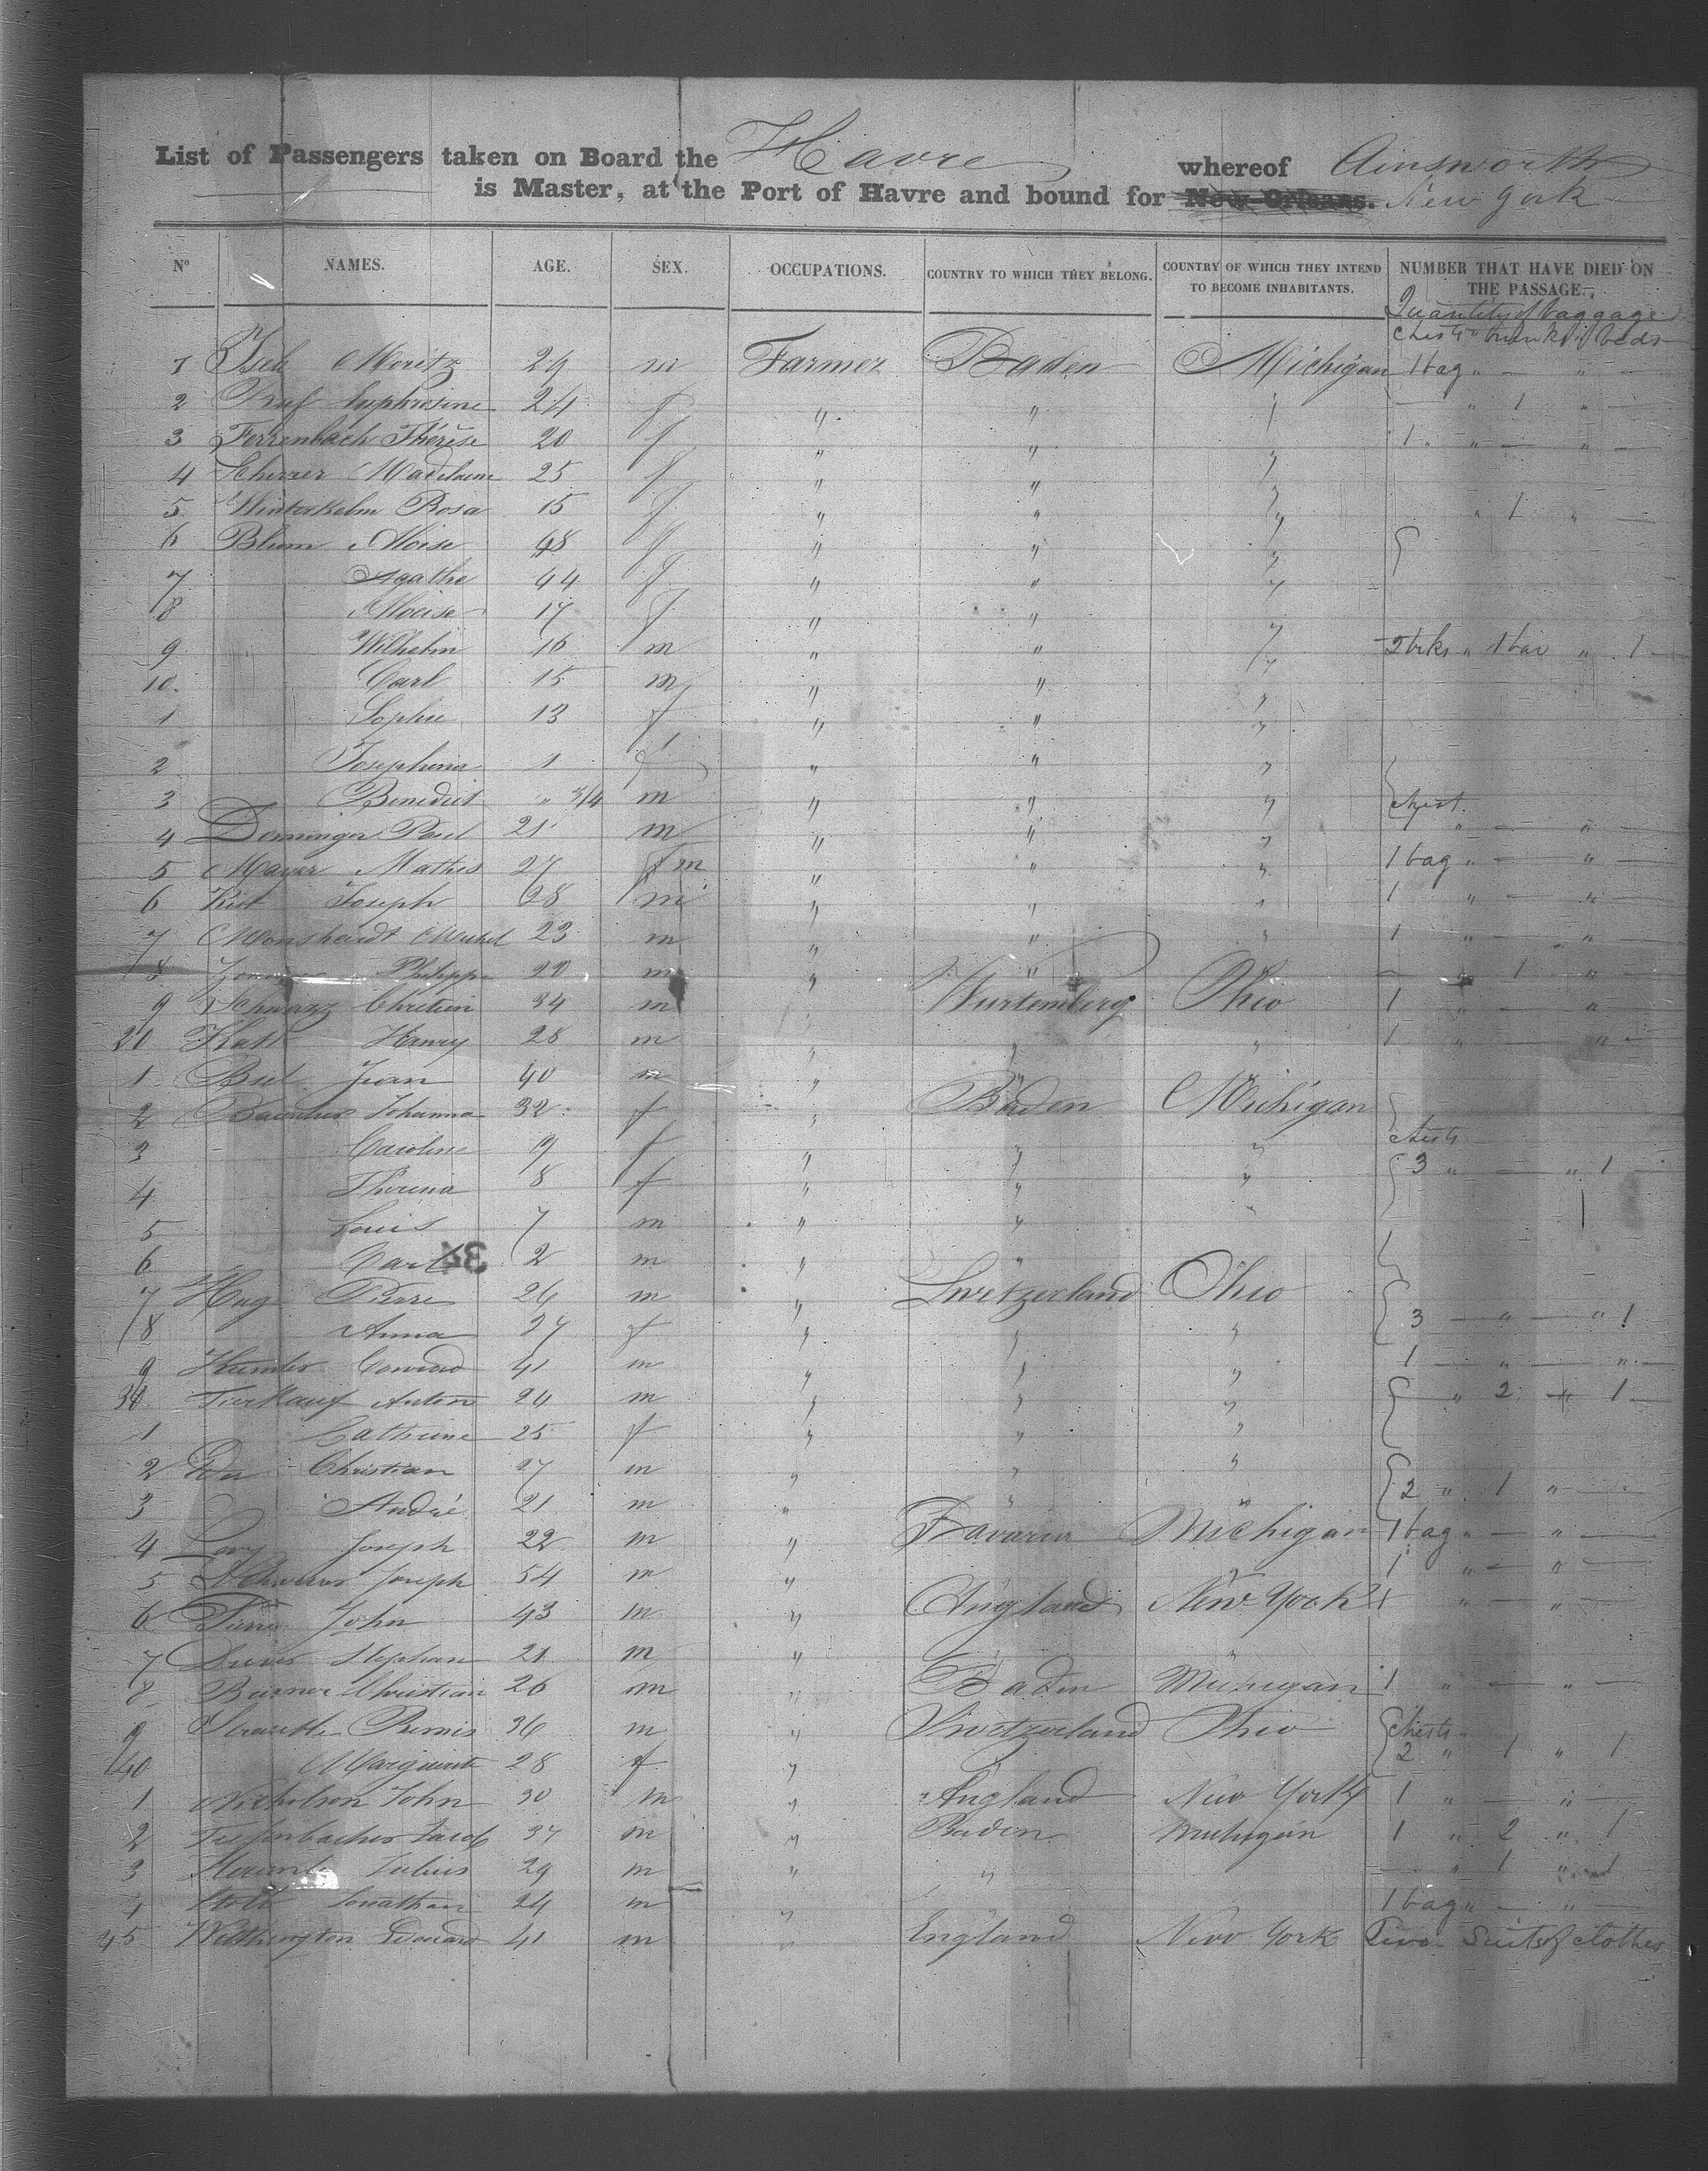 List of Passengers taken on Board the Havre whereof Ainsworth
is Master, at the Port of Havre and bound for New Orleans. New York
Nº NAMES. AGE. SEX. OCCUPATIONS. COUNTRY TO WHICH THEY BELONG. COUNTRY OF WHICH THEY INTEND TO BECOME INHABITANTS. NUMBER THAT HAVE DIED ON THE PASSAGE.
Quantity of baggage
chests " trunks " beds
1 Moritz 29 m Farmer Baden Michigan 1 bag " — " —
2 Ruf Euphrosine 24 f " " " — " 1 " —
3 Ferrenbach Thérèse 20 f " " " 1 " — " —
4 Scherrer Madelaine 25 f " " "
5 Winterhelm Rosa 15 f " " " " 1 " —
6 Blum Moise 48 f " " "
7 Agathe 44 f " " "
8 Moise 17 f " " "
9 Wilhelm 16 m " " " 2 bks " 1 bar " 1
10. Carl 15 m " " "
1 Sophie 13 f " " "
2 Josephina 1 f " " "
3 Benedict " 3/4 m " " " chest
4 Denninger Paul 21 m " " " 1 " — " —
5 Mayer Mathis 27 m " " " 1 bag " — " —
6 Kist Joseph 28 m " " " 1 " — " —
7 Monshardt Michel 23 m " " " 1 " — " —
8 Philippe 22 m " " " — " 1 " —
9 Schwarz Chretien 34 m Wurtemberg Ohio 1 " — "
20 Henry 28 m " " " 1 " — " —
1 Jean 40 m " "
2 Johanna 32 f " Baden Michigan
3 Caroline 9 f " " " chests
4 Theresia 8 f " " " 3 " — " 1
5 Louis 7 m " " "
6 Carl 2 m " "
34
7 Hug Pierre 26 m " Switzerland Ohio
8 Anna 27 f " " " 3 — " — " 1
9 Conrad 41 m " " " 1 — " — " —
30 Anton 24 m " " " — " 2 " 1
1 Catherine 25 f " " "
2 Christian 27 m " " "
3 André 21 m " " " 2 " 1 " —
4 Levy Joseph 22 m " Bavaria Michigan 1 bag " — " —
5 Joseph 54 m " " " 1 " — " —
6 John 43 m " England New York 1 " — " —
7 Stephan 21 m " " "
8 Christian 26 m " Baden Michigan 1 " — " —
9 Remis 36 m " Switzerland Ohio chests
40 Marguerite 28 f " 2 " 1 " 1
1 Nicholson John 30 m " England New York 1 " — " —
2 Tiefenbacher Jacob 37 m " Baden Michigan 1 " 2 " 1
3 Julius 29 m " " — " 1 " 1
4 Jonathan 24 m " 1 bag " — " —
45 Withington Edouard 41 m " England New York Two Suits of clothes